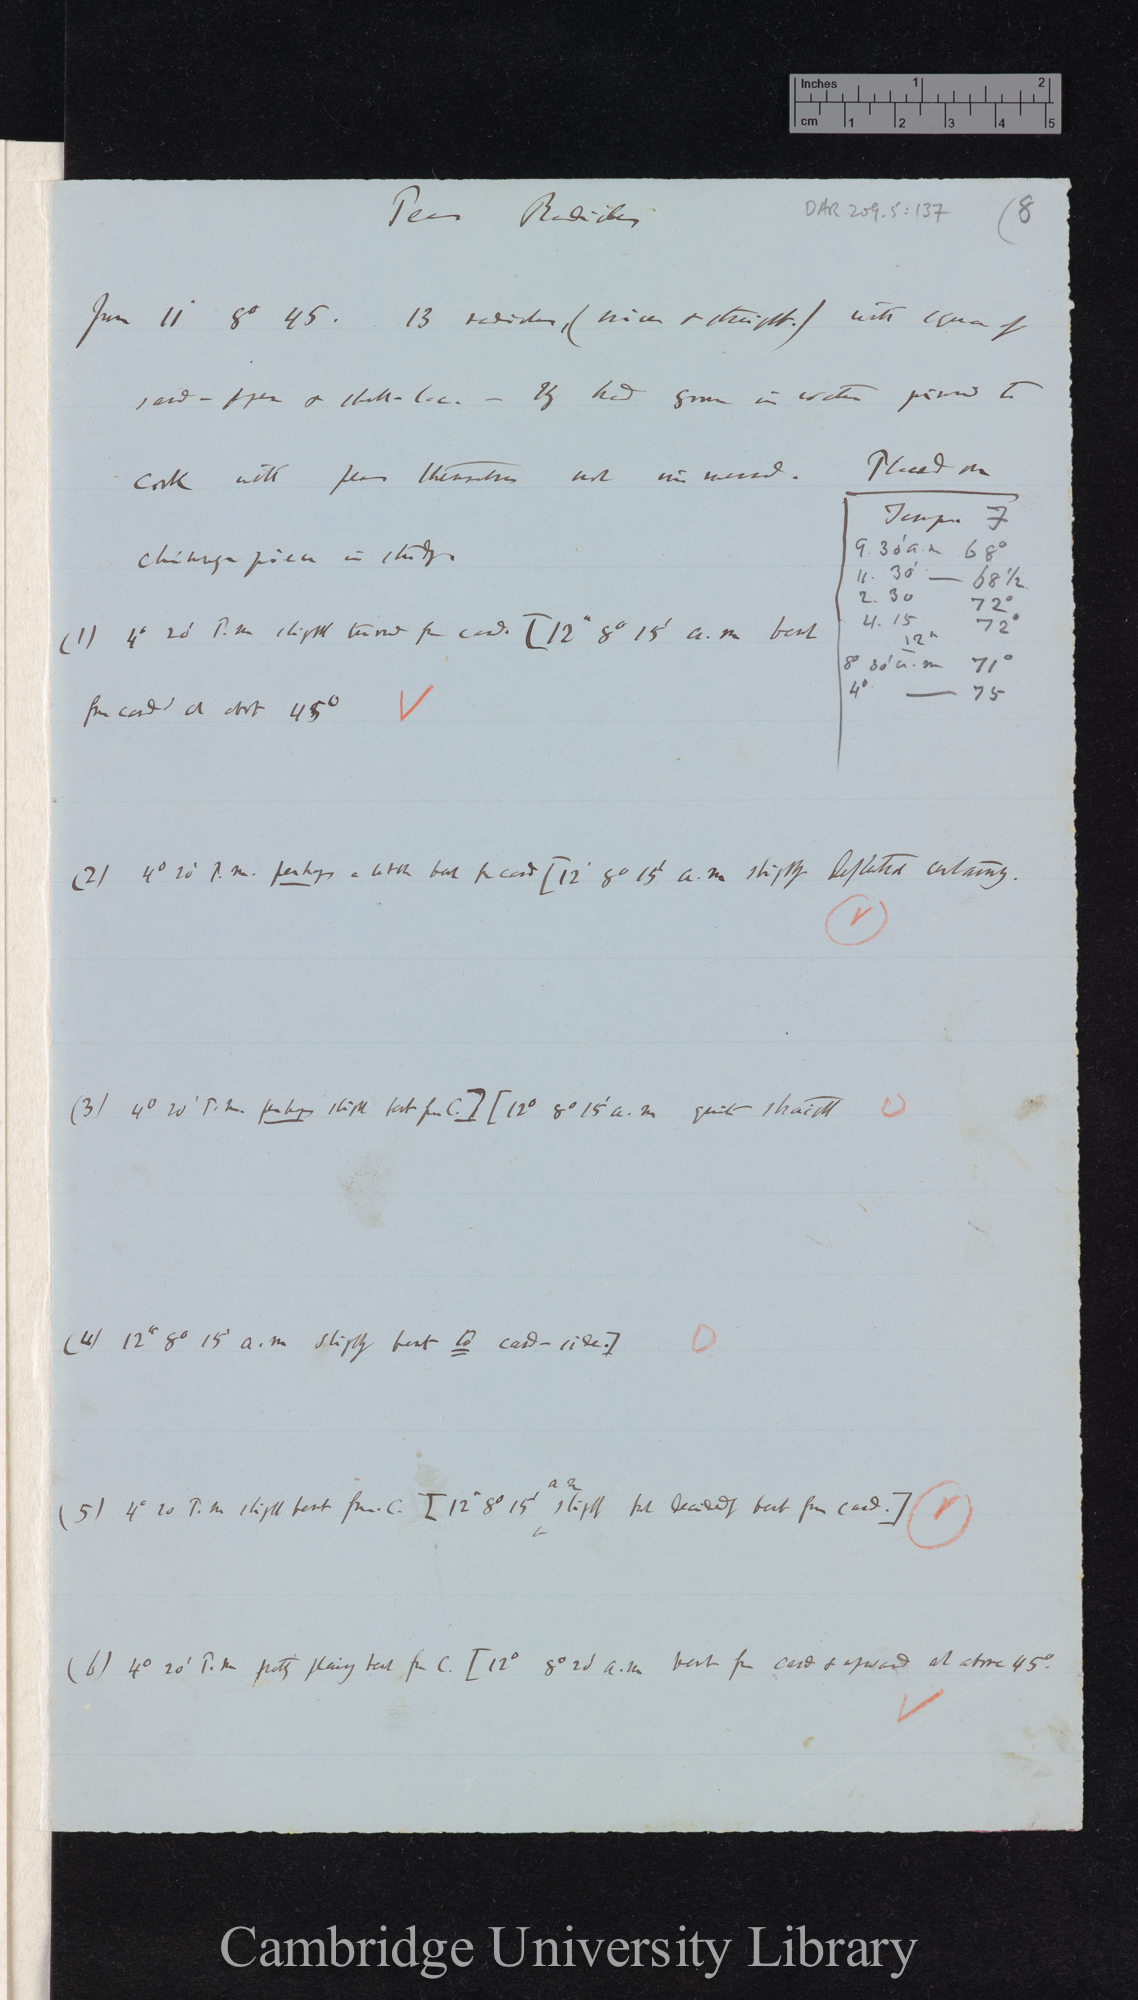 Inches 1 2
cm 1 2 3 4 5
Peas Radicles
DAR 209.5:137
(8
June 11' 8° 45. 13 radicles, (nice & straight.) with square of
sand-paper & shell-lac. — They had grown in water pinned to
cork with peas themselves not immersed. Placed on
chimney piece in study.
Temp. F
9. 30' a.m 68°
11. 30' — 68 1/2
2. 30 72°
4. 15 72°
12th
8° 30' a.m 71°
4° — 75
(1) 4° 20' P.m slightly turned from card. [12th 8° 15' a.m bent
from card at about 45° ✓
(2) 4° 20' P.m. perhaps a little bent from card [12' 8° 15' a.m slightly deflected certainly.
✓
(3) 4° 20' P.m. perhaps slightly bent from C.] [12° 8° 15' a.m quite straight 0
(4) 12th 8° 15' a.m slightly bent to card-side.] 0
a m
(5) 4° 20 P.m slightly bent from C. [12th 8° 15' slightly but decidedly bent from card.] ✓
(6) 4° 20' P.m pretty plainly bent from C. [12° 8° 20' a.m bent from card & upward at above 45°.
✓
Cambridge University Library